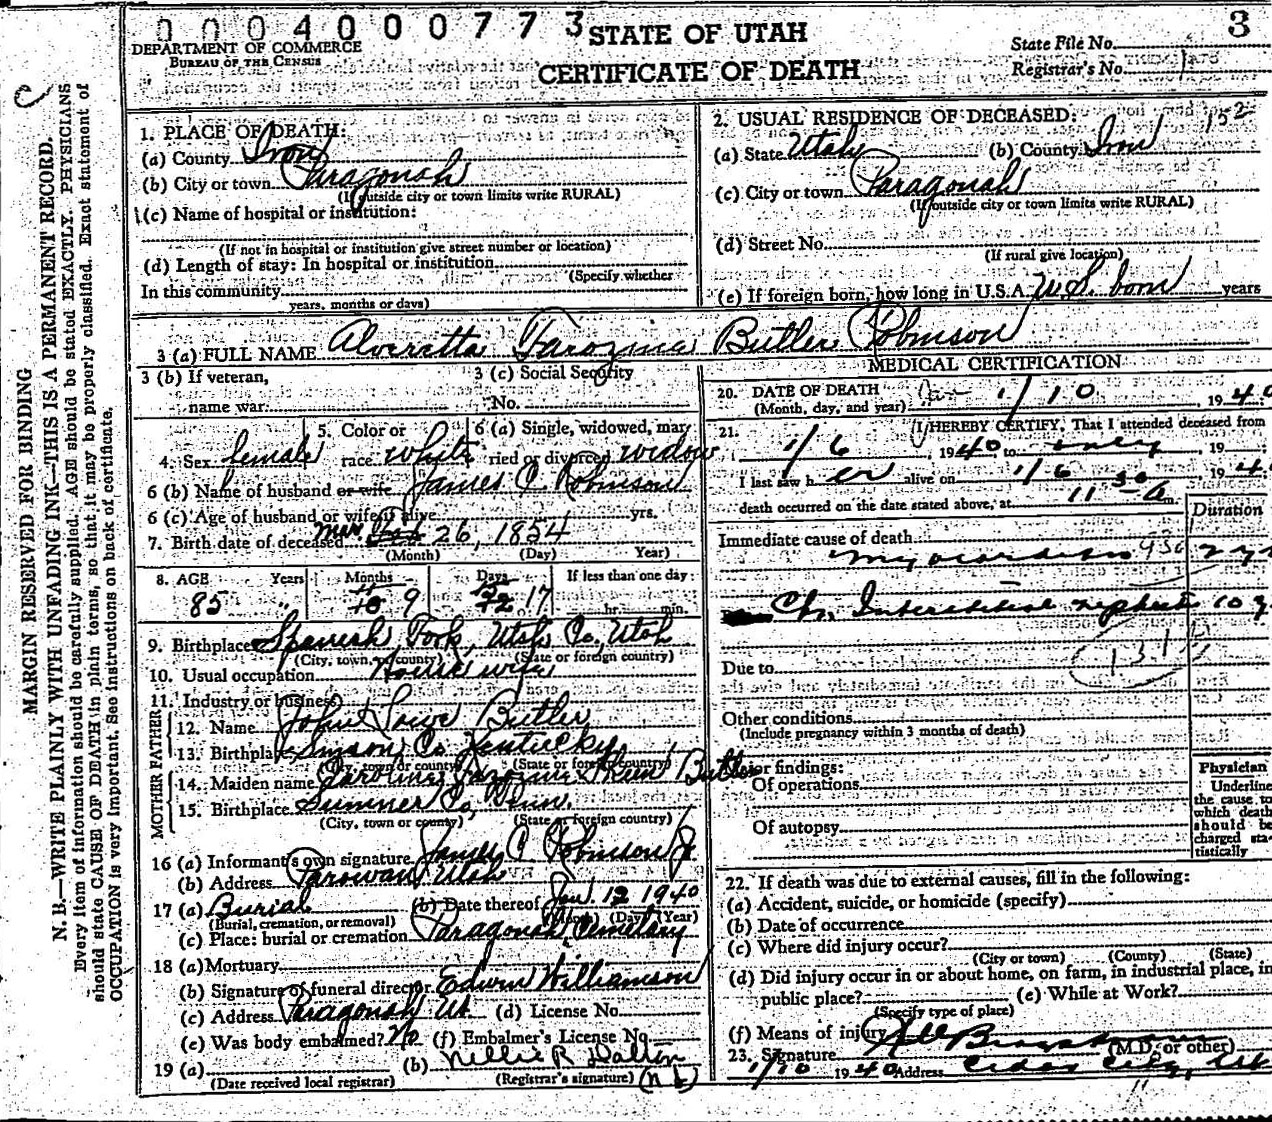 0 0 0 4 0 0 0 7 7 3
3
STATE OF UTAH
DEPARTMENT OF COMMERCE
BUREAU OF THE CENSUS
CERTIFICATE OF DEATH
State File No.
Registrar's No. 1
MARGIN RESERVED FOR BINDING
N. B.—WRITE PLAINLY WITH UNFADING INK—THIS IS A PERMANENT RECORD.
Every item of information should be carefully supplied. AGE should be stated EXACTLY. PHYSICIANS
should state CAUSE OF DEATH in plain terms, so that it may be properly classified. Exact statement of
OCCUPATION is very important. See instructions on back of certificate.
1. PLACE OF DEATH:
(a) County Iron
(b) City or town Paragonah
(If outside city or town limits write RURAL)
(c) Name of hospital or institution:
(If not in hospital or institution give street number or location)
(d) Length of stay: In hospital or institution
(Specify whether
In this community
years, months or days)
2. USUAL RESIDENCE OF DECEASED: 152
(a) State Utah (b) County Iron
(c) City or town Paragonah
(If outside city or town limits write RURAL)
(d) Street No.
(If rural give location)
(e) If foreign born, how long in U.S.A. U.S. born years
3 (a) FULL NAME Alveretta Farozina Butler Robinson
3 (b) If veteran,
name war
3 (c) Social Security
No.
4. Sex female
5. Color or
race white
6 (a) Single, widowed, mar
ried or divorced widow
6 (b) Name of husband or wife James C Robinson
6 (c) Age of husband or wife if alive yrs.
7. Birth date of deceased Mar 26, 1854
(Month) (Day) Year)
8. AGE Years Months Days If less than one day:
85 9 17 hr. min.
9. Birthplace Spanish Fork, Utah Co, Utah
(City, town, or county) (State or foreign country)
10. Usual occupation House wife
11. Industry or business
FATHER
12. Name John Lowe Butler
13. Birthplace Simson Co Kentucky
(City, town or county) (State or foreign country)
MOTHER
14. Maiden name Caroline Farozine Skeen Butler
15. Birthplace Sumner Co, Tenn.
(City, town or county) (State or foreign country)
16 (a) Informant's own signature James C Robinson Jr
(b) Address Parowan Utah
17 (a) Burial (b) Date thereof Jan. 12 1940
(Burial, cremation, or removal) (Month) (Day) (Year)
(c) Place: burial or cremation Paragonah Cemetary
18 (a) Mortuary
(b) Signature of funeral director Edwin Williamson
(c) Address Paragonah Ut. (d) License No.
(e) Was body embalmed? No (f) Embalmer's License No.
19 (a) (b) Nellie R Dalton
(Date received local registrar) (Registrar's signature)
MEDICAL CERTIFICATION
20. DATE OF DEATH Jan 1/10, 1940
(Month, day, and year)
21. I HEREBY CERTIFY, That I attended deceased from
1/6, 1940 to only, 19
I last saw her alive on 1/6 194
death occurred on the date stated above, at 11 30 a m.
Duration
Immediate cause of death
Myocarditis 93c 2 y
Ch. Interstitial nephritis 10 y
131
Due to
Other conditions
(Include pregnancy within 3 months of death)
Major findings:
Of operations
Of autopsy
Physician
Underline
the cause to
which death
should be
charged sta-
tistically
22. If death was due to external causes, fill in the following:
(a) Accident, suicide, or homicide (specify)
(b) Date of occurrence
(c) Where did injury occur?
(City or town) (County) (State)
(d) Did injury occur in or about home, on farm, in industrial place, in
public place? (e) While at Work?
(Specify type of place)
(f) Means of injury
23. Signature
(M.D. or other)
1/10 1940 Address Cedar City, Ut